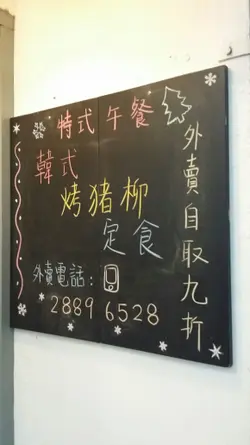 特式午餐
韓式
烤猪柳
定食
外賣電話:
2889 6528
外賣自取九折